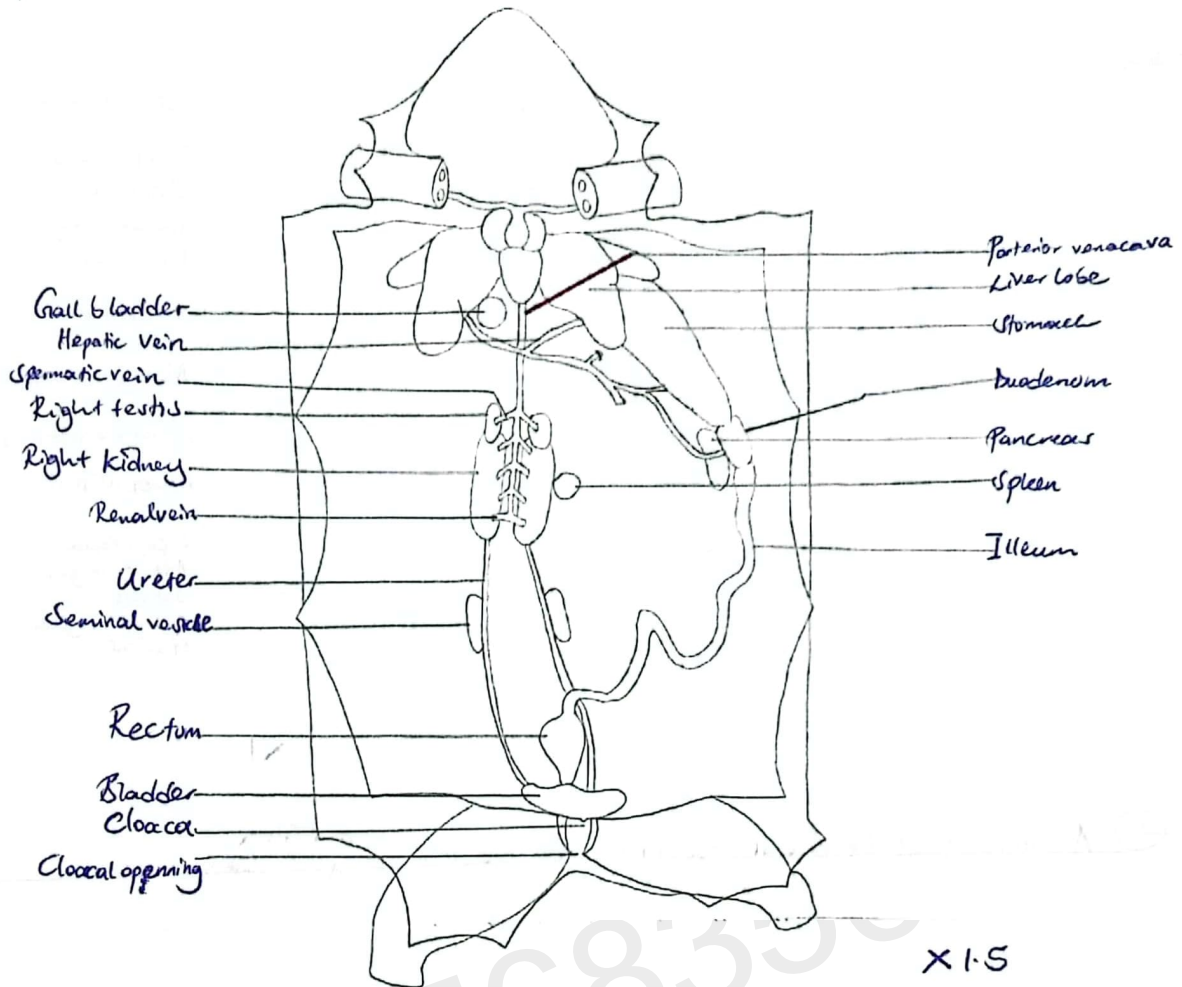 Gall bladder
Hepatic vein
Spermatic vein
Right testis
Right kidney
Renal vein
Ureter
Seminal vesicle
Rectum
Bladder
Cloaca
Cloacal openning
Posterior venacava
Liver lobe
Stomach
Duodenum
Pancreas
Spleen
Illeum
X 1.5